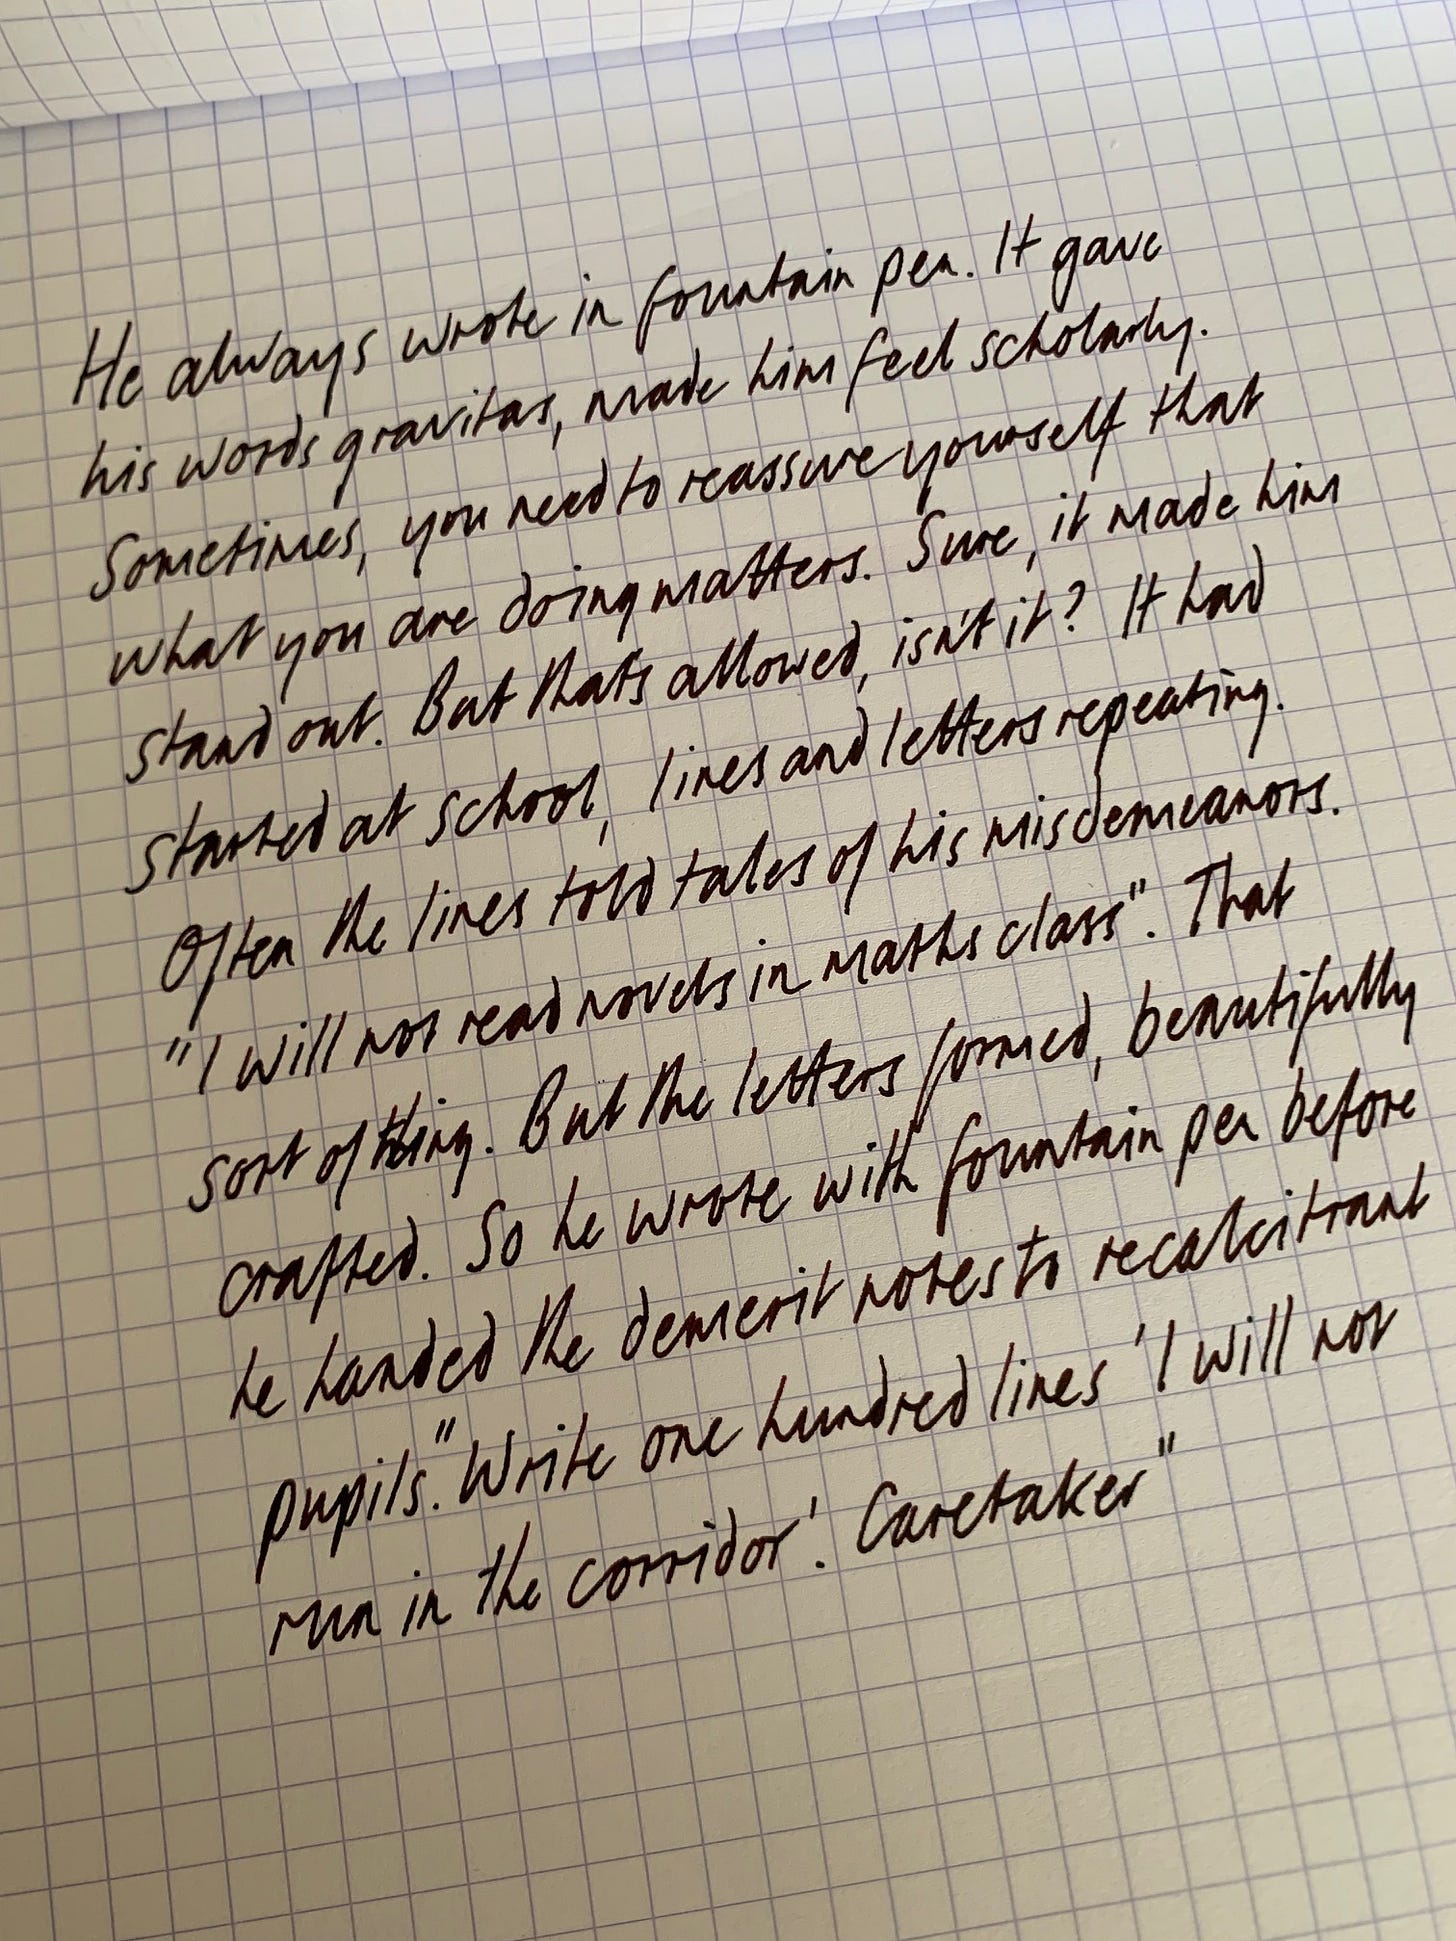 He always wrote in fountain pen. It gave
his words gravitas, made him feel scholarly.
Sometimes, you need to reassure yourself that
what you are doing matters. Sure, it made him
stand out. But that's allowed, isn't it? It had
started at school, lines and letters repeating.
Often the lines told tales of his misdemeanors.
"I will not read novels in maths class". That
sort of thing. But the letters formed, beautifully
crafted. So he wrote with fountain pen before
he handed the demerit notes to recalcitrant
pupils. "Write one hundred lines 'I will not
run in the corridor'. Caretaker"